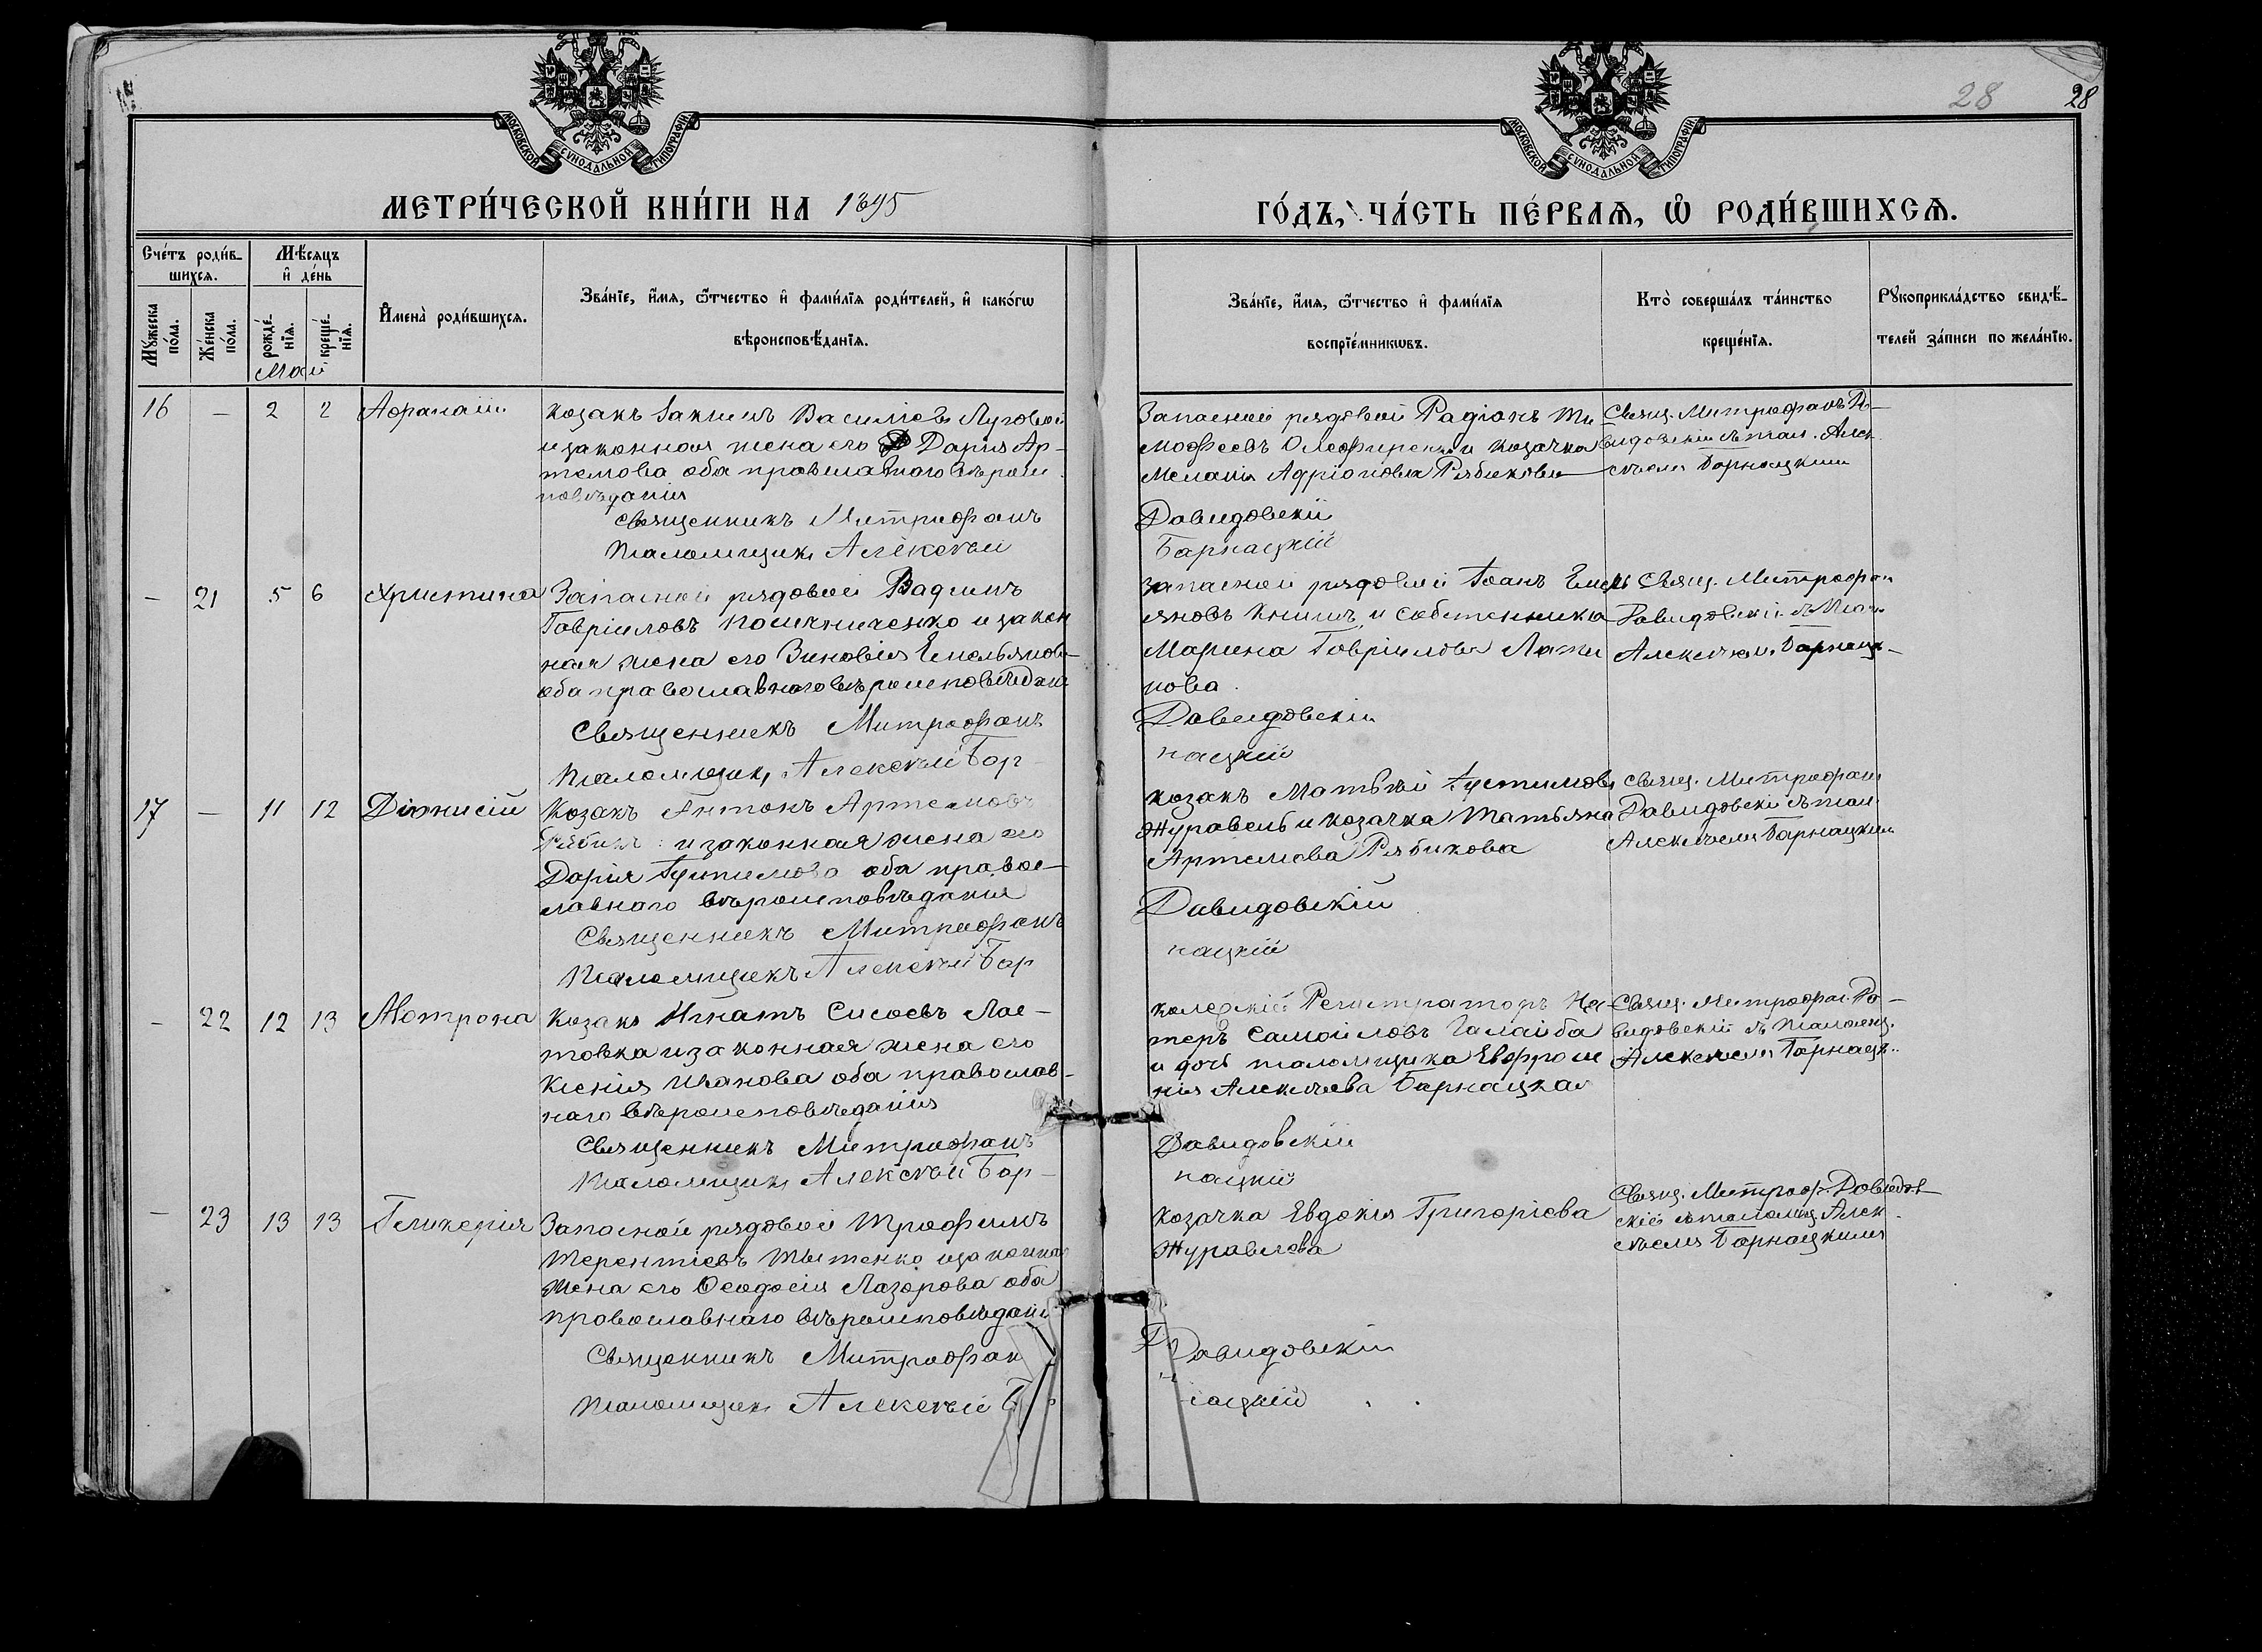 28 28
МОСКОВСКОЙ СѴНОДАЛЬНОЙ ТИПОГРАФІИ
МОСКОВСКОЙ СѴНОДАЛЬНОЙ ТИПОГРАФІИ
МЕТРИ́ЧЕСКОЙ КНИ́ГИ НА 1895
ГО́ДЪ, ЧА́СТЬ ПЕ́РВАѦ, Ѽ РОДИ́ВШИХСѦ.
Сче́тъ роди́в-
шихсѧ.
Мꙋ́жеска
по́ла.
Же́нска
по́ла.
Мѣ́сяцъ
и҆ де́нь
рожде́-
нїѧ.
креще́-
нїѧ.
Май
И҆мена̀ роди́вшихсѧ.
Зва́нїе, и҆́мѧ, ѻ҆́тчество и҆ фами́лїѧ роди́телей, и҆ како́гѡ
вѣроисповѣ́данїѧ.
Зва́нїе, и҆́мѧ, ѻ҆́тчество и҆ фами́лїѧ
воспрїе́мникѡвъ.
Кто̀ соверша́лъ та́инство
креще́нїѧ.
Рꙋкоприкла́дство свидѣ́-
телей за́писи по жела́нїю.
16 — 2 2
Козакъ Іакимъ Василіевъ Луговой
и законная жена его Дарія Ар-
темова оба православнаго вѣроис
повѣданія
Священникъ Митрофанъ
Псаломщикъ Алексѣй
Запасной рядовой Радіонъ Ти
мофеевъ Олефиренко и козачка
Меланія Адріонова Рябикова
Давидовскій
Барнацкій
Свящ. Митрофанъ Да-
видовскій съ псал. Алек
сѣемъ Барнацкимъ
— 21 5 6 Христина
Запасной рядовой Вадимъ
Гавріиловъ и закон
ная жена его Зиновія Емельянова
оба православнаго вѣроисповѣдан
Священникъ Митрофанъ
Псаломщикъ Алексѣй Бар-
Запасной рядовой Іоанъ Емель
яновъ Книшъ и собственника
Марина Гавріилова
нова
Давидовскій
нацкій
Свящ. Митрофан
Давидовскій съ Псал.
Алексѣем. Барнацк-
17 — 11 12 Діонисій
Козакъ Антонъ Артемовъ
Рябик и законная жена его
Дарія Іустимова оба правос-
лавнаго вѣроисповѣданія
Священникъ Митрофанъ
Псаломщикъ Алексѣй Бар
Козакъ Матвѣй Іустимовъ
Журавель и козачка Татьяна
Артемова Рябикова
Давидовскій
нацкій
Свящ. Митрофан
Давидовскій съ псал.
Алексѣемъ Барнацким
— 22 12 13 Мотрона
Козакъ Игнатъ Сисоевъ Лас-
товка и законная жена его
Ксенія Иванова оба православ-
наго вѣроисповѣданія
Священникъ Митрофанъ
Псаломщикъ Алексѣй Бар-
Колежскій Регистраторъ Не-
теръ Самойловъ Галайба
и дочь псаломщика Евфроси
нія Алексѣева Барнацкая
Давидовскій
нацкій
Свящ. Митрофан. Да-
видовскій съ Псаломщ.
Алексѣемъ Барнацк.
— 23 13 13 Гликерія
Запасной рядовой Трофимъ
Терентіевъ и законная
жена его Ѳеодосія Лазорова оба
православнаго вѣроисповѣдані
Священникъ Митрофан
Псаломщикъ Алексѣй Б
Козачка Евдокія Григоріева
Журавлева
Давидовскій
нацкій
Свящ. Митроф. Давидов
скій съ псаломщ Алек
сѣемъ Барнацкимъ